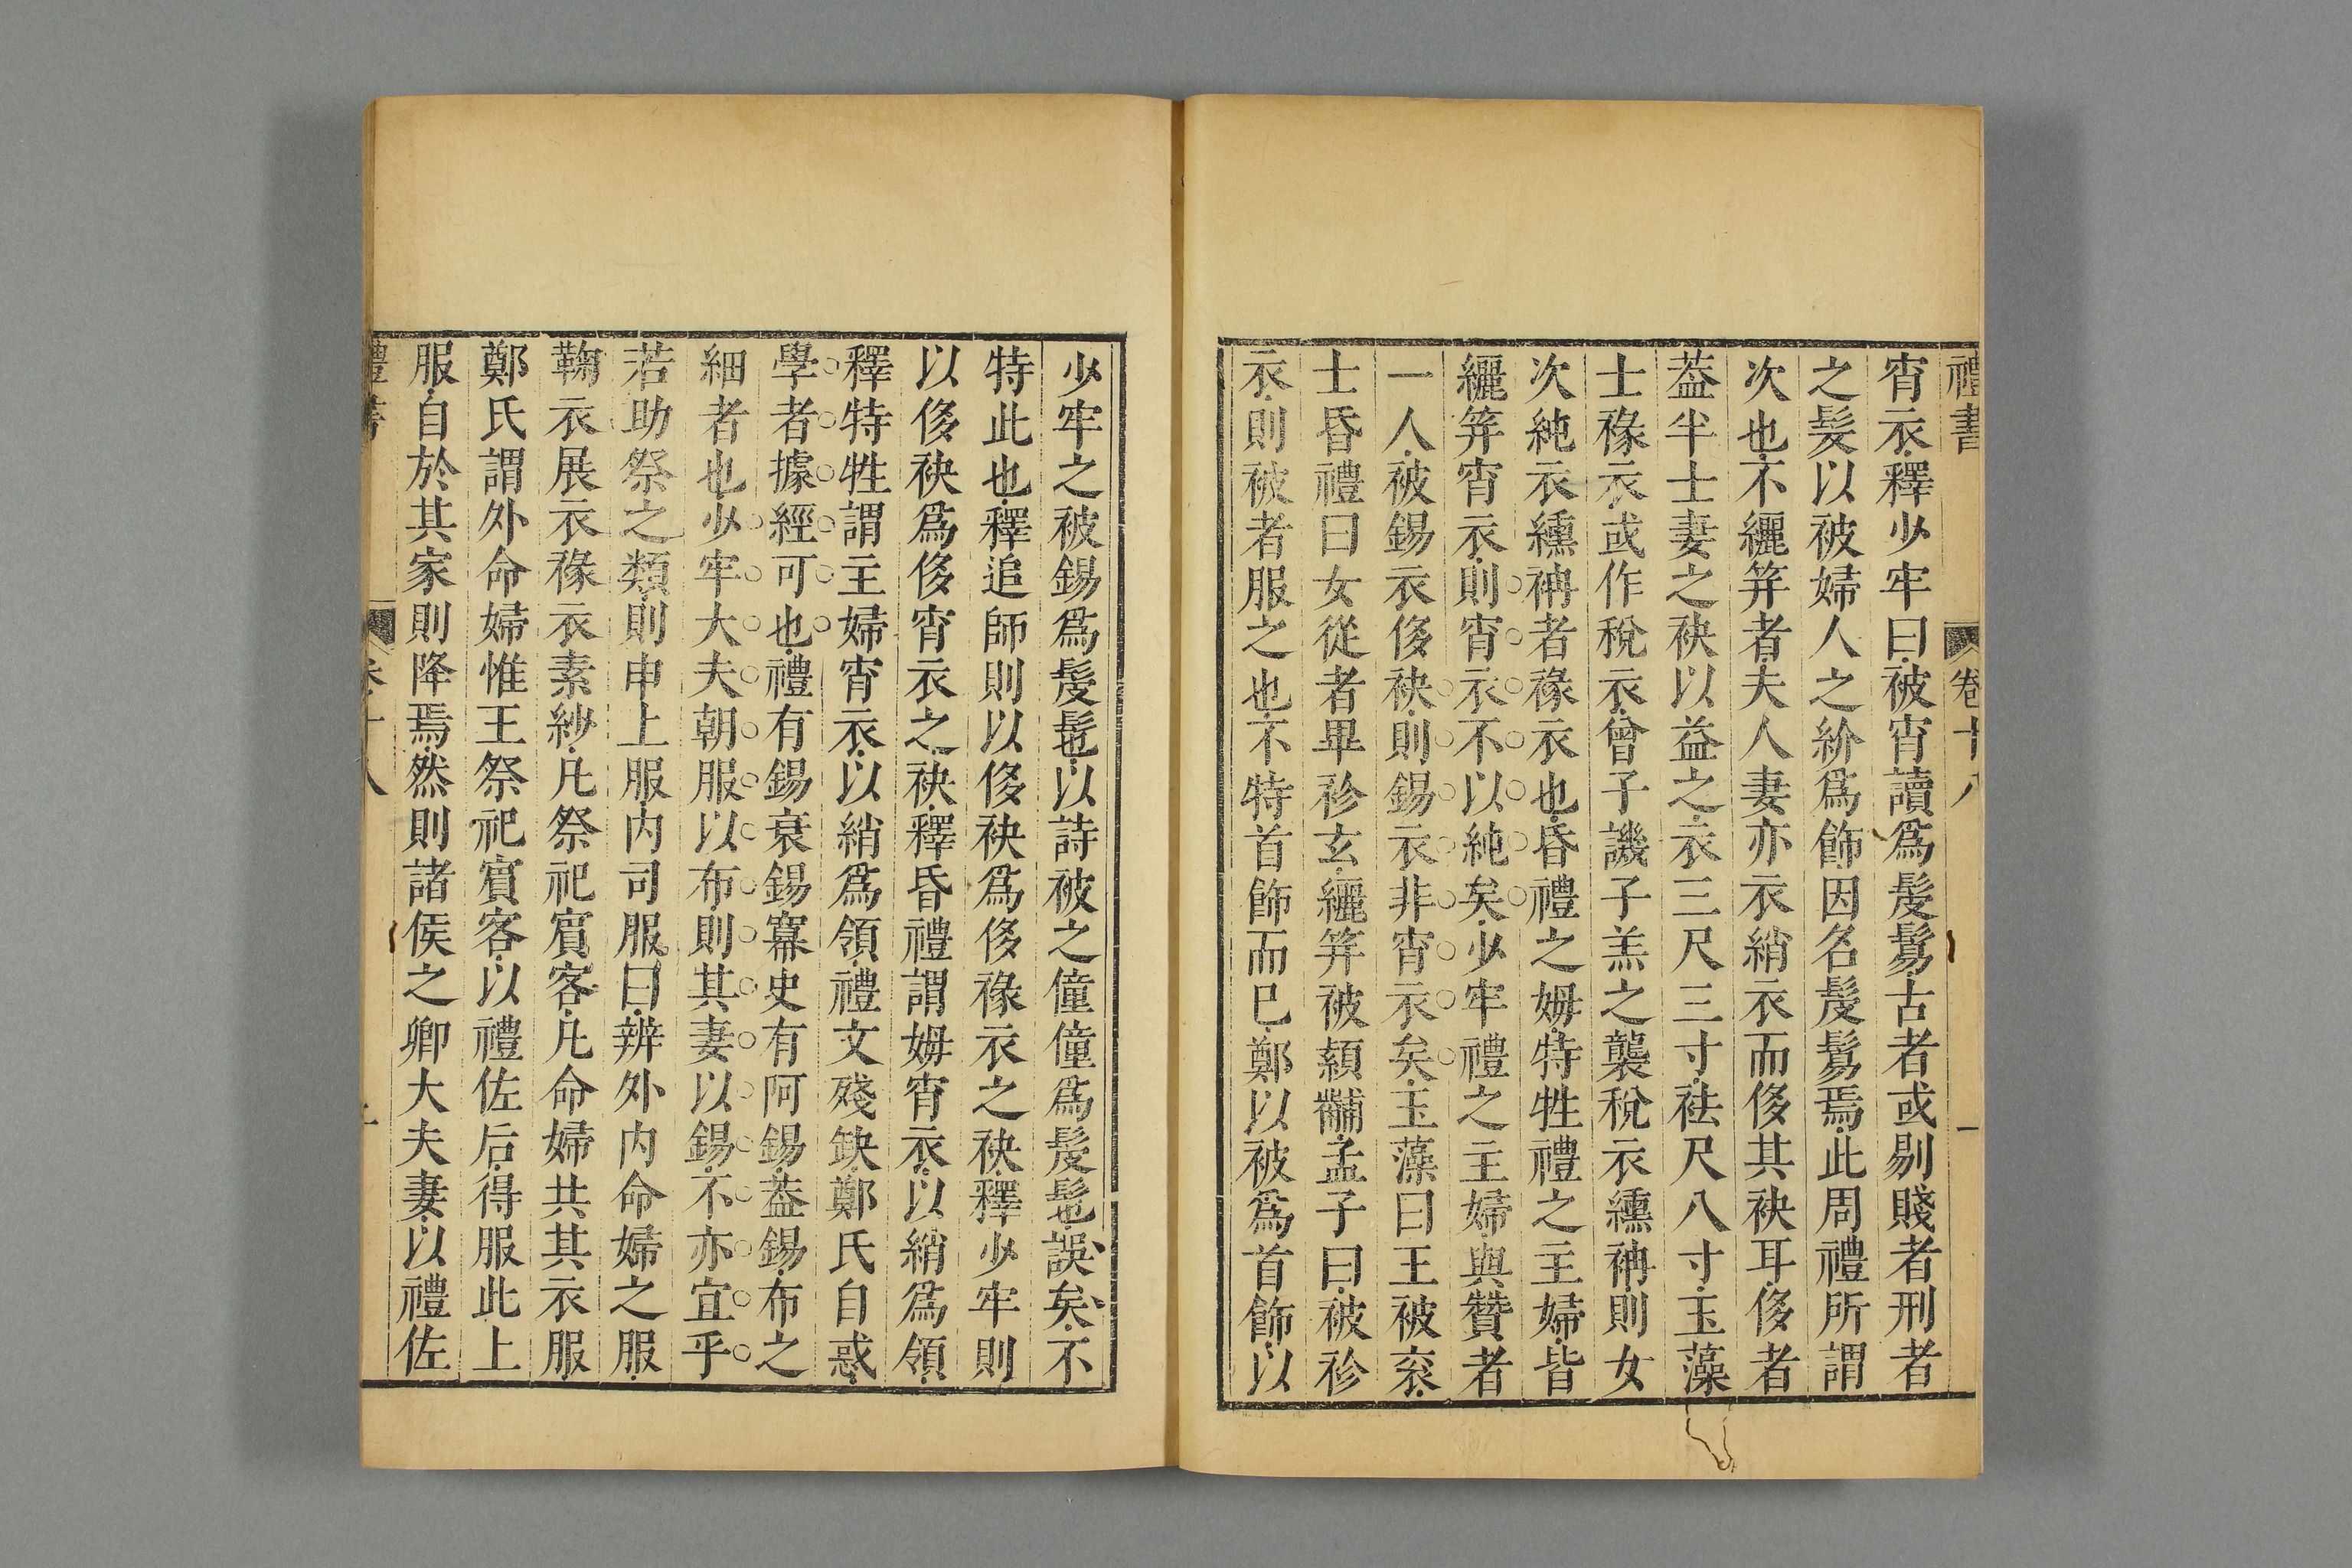 禮書 卷十八 一
宵衣釋少牢曰被宵讀爲髲鬄古者或剔賤者刑者
之髮以被婦人之紒爲飾因名髲鬄焉此周禮所謂
次也不纚笄者夫人妻亦衣綃衣而侈其袂耳侈者
葢半士妻之袂以益之衣三尺三寸袪尺八寸玉藻
士褖衣或作稅衣曾子譏子羔之襲稅衣纁袡則女
次純衣纁袡者褖衣也昏禮之姆特牲禮之主婦皆
纚笄宵衣則宵衣不以純矣少牢禮之主婦與贊者
一人被錫衣侈袂則錫衣非宵衣矣玉藻曰王被衮
士昏禮曰女從者畢袗玄纚笄被顈黼孟子曰被袗
衣則被者服之也不特首飾而巳鄭以被爲首飾以
少牢之被錫爲髲髢以詩被之僮僮爲髲髢誤矣不
特此也釋追師則以侈袂爲侈褖衣之袂釋少牢則
以侈袂爲侈宵衣之袂釋昏禮謂姆宵衣以綃爲領
釋特牲謂主婦宵衣以綃爲領禮文殘缺鄭氏自惑
學者據經可也禮有錫衰錫冪史有阿錫葢錫布之
細者也少牢大夫朝服以布則其妻以錫不亦宜乎
若助祭之類則申上服内司服曰辨外内命婦之服
鞠衣展衣褖衣素紗凡祭祀賓客凡命婦共其衣服
鄭氏謂外命婦惟王祭祀賓客以禮佐后得服此上
服自於其家則降焉然則諸侯之卿大夫妻以禮佐
禮書 卷十八